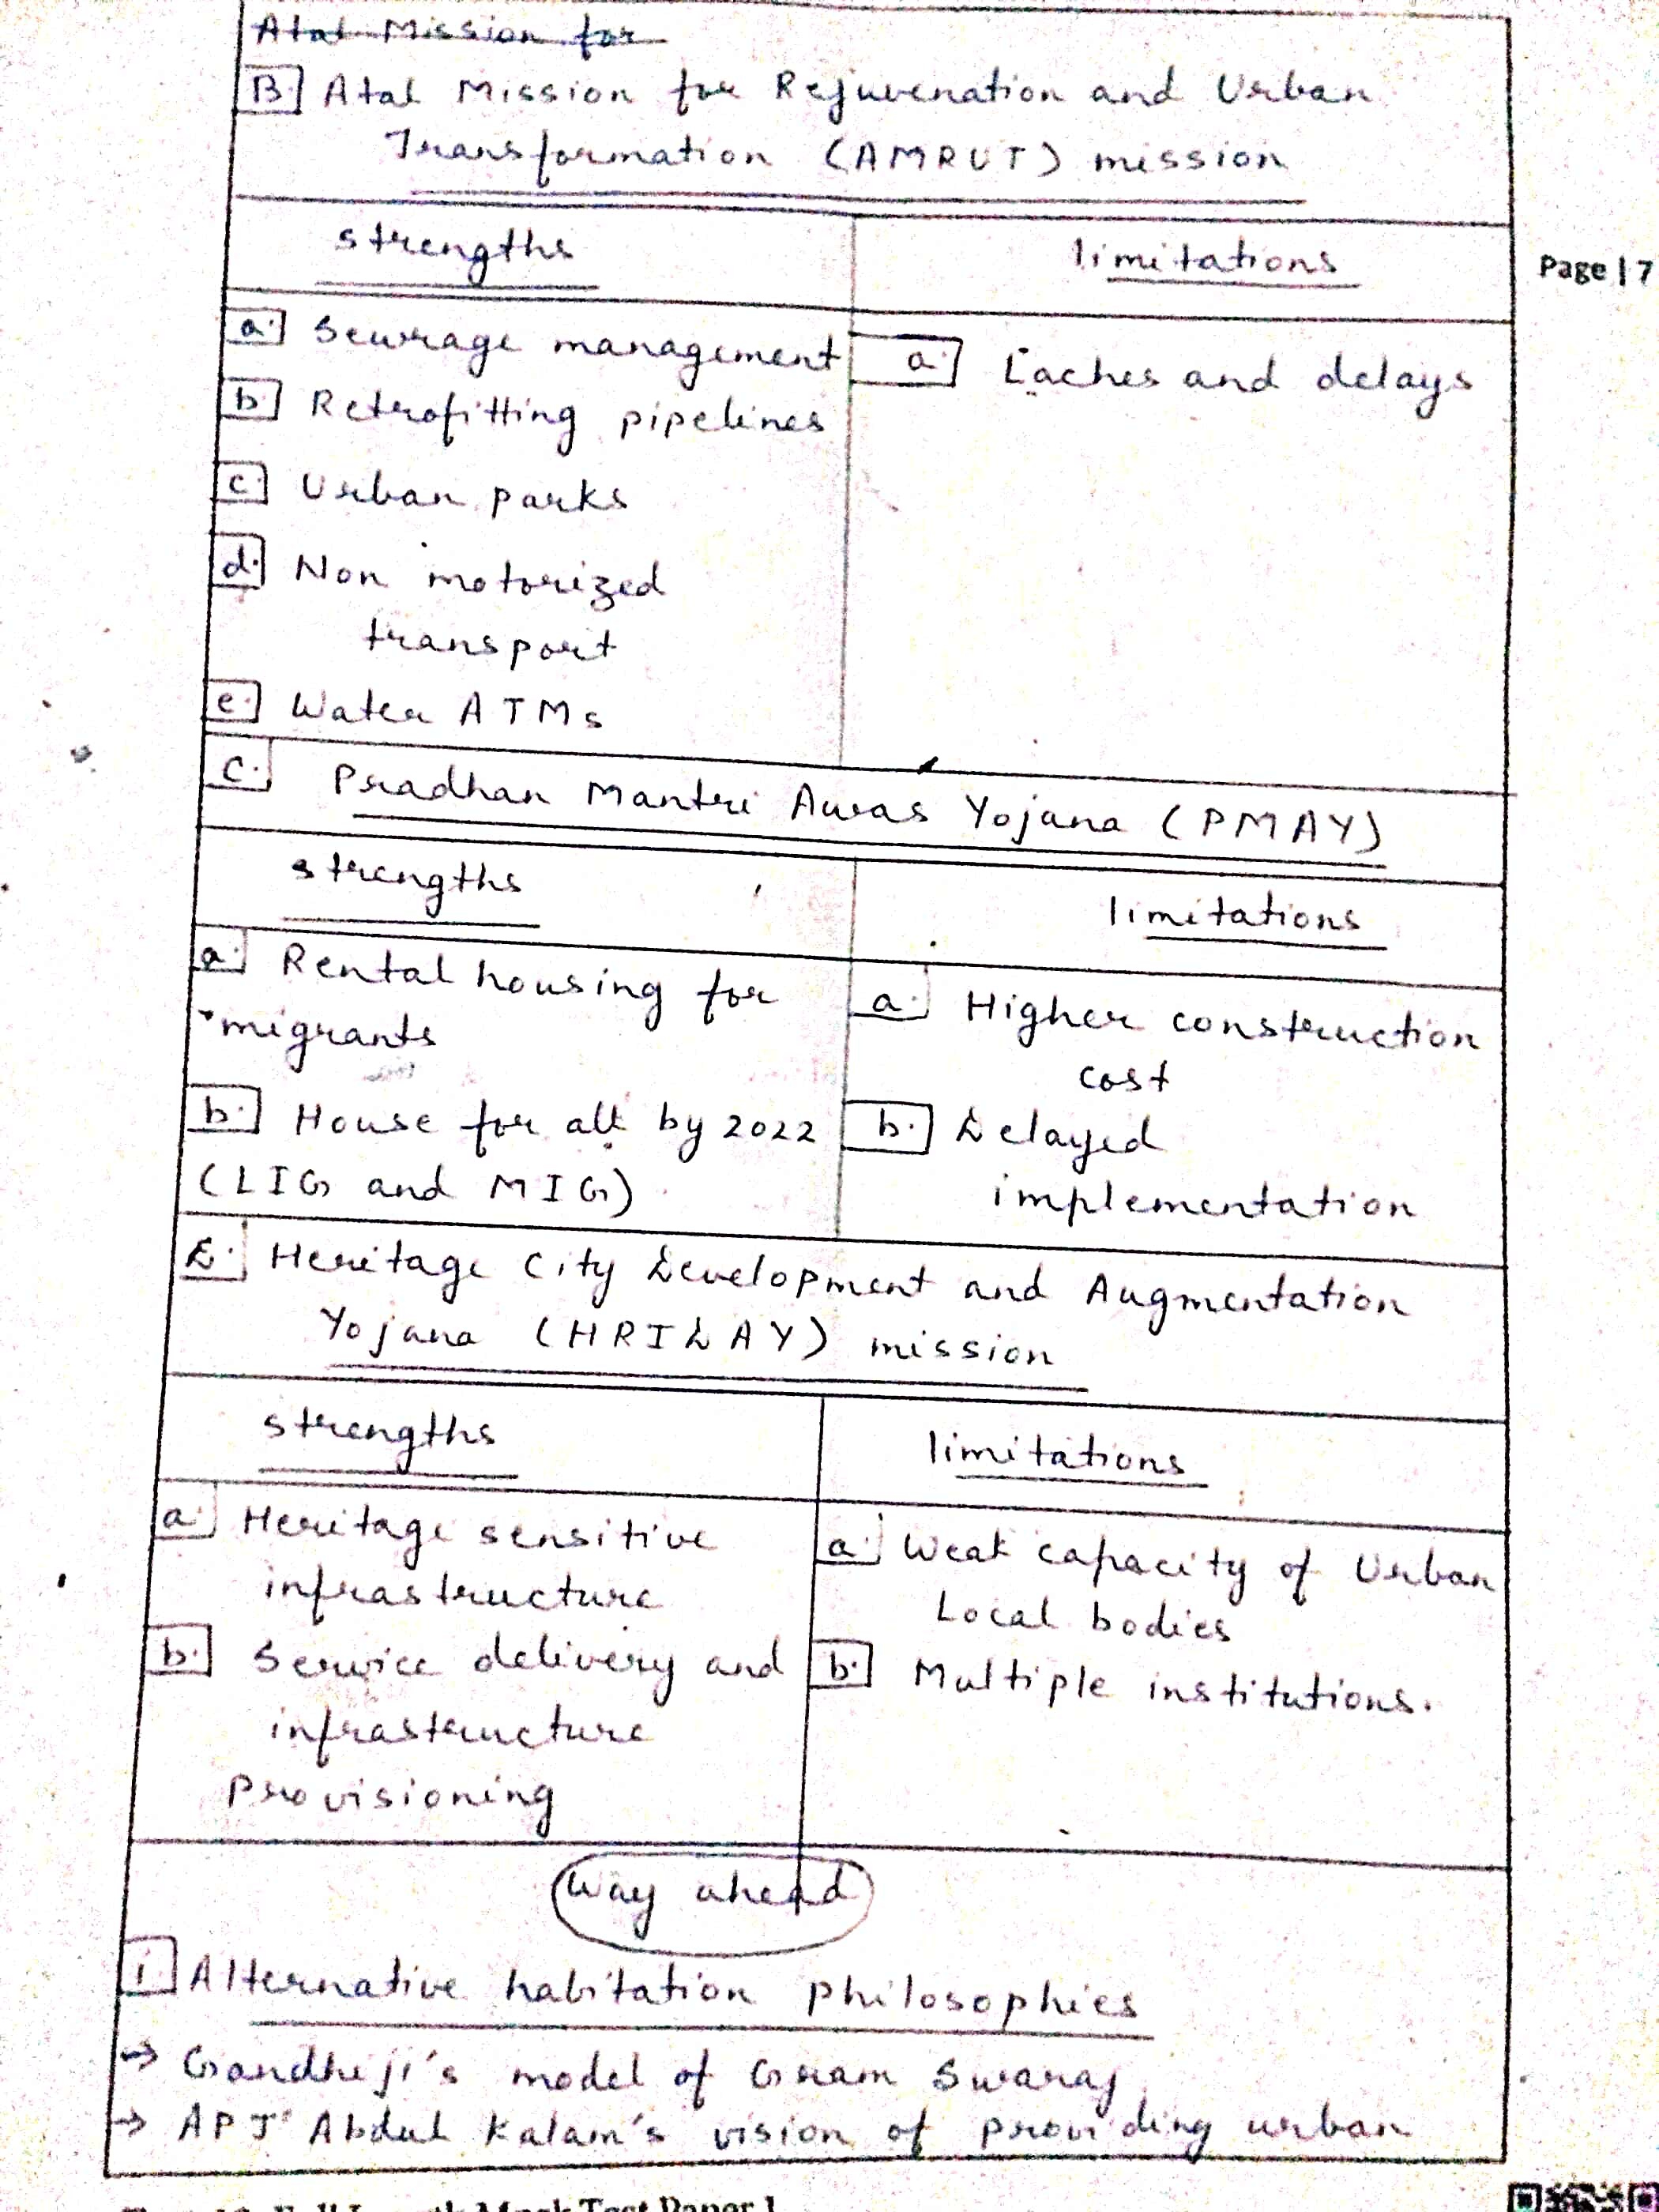 Atal Mission for
B. Atal Mission for Rejuvenation and Urban
Transformation (AMRUT) mission
strengths
limitations
Page | 7
a. Sewrage management
a. Laches and delays
b. Retrofitting pipelines
c. Urban parks
d. Non motorized
transport
e. Water ATMs
C. Pradhan Mantri Awas Yojana (PMAY)
strengths
limitations
a. Rental housing for
migrants
a. Higher construction
cost
b. House for all by 2022
(LIG and MIG)
b. Delayed
implementation
D. Heritage City Development and Augmentation
Yojana (HRIDAY) mission
strengths
limitations
a. Heritage sensitive
infrastructure
a. Weak capacity of Urban
Local bodies
b. Service delivery and
infrastructure
provisioning
b. Multiple institutions.
Way ahead
i. Alternative habitation philosophies
→ Gandhiji's model of Gram Swaraj
→ APJ Abdul Kalam's vision of providing urban
Mock Test Paper 1